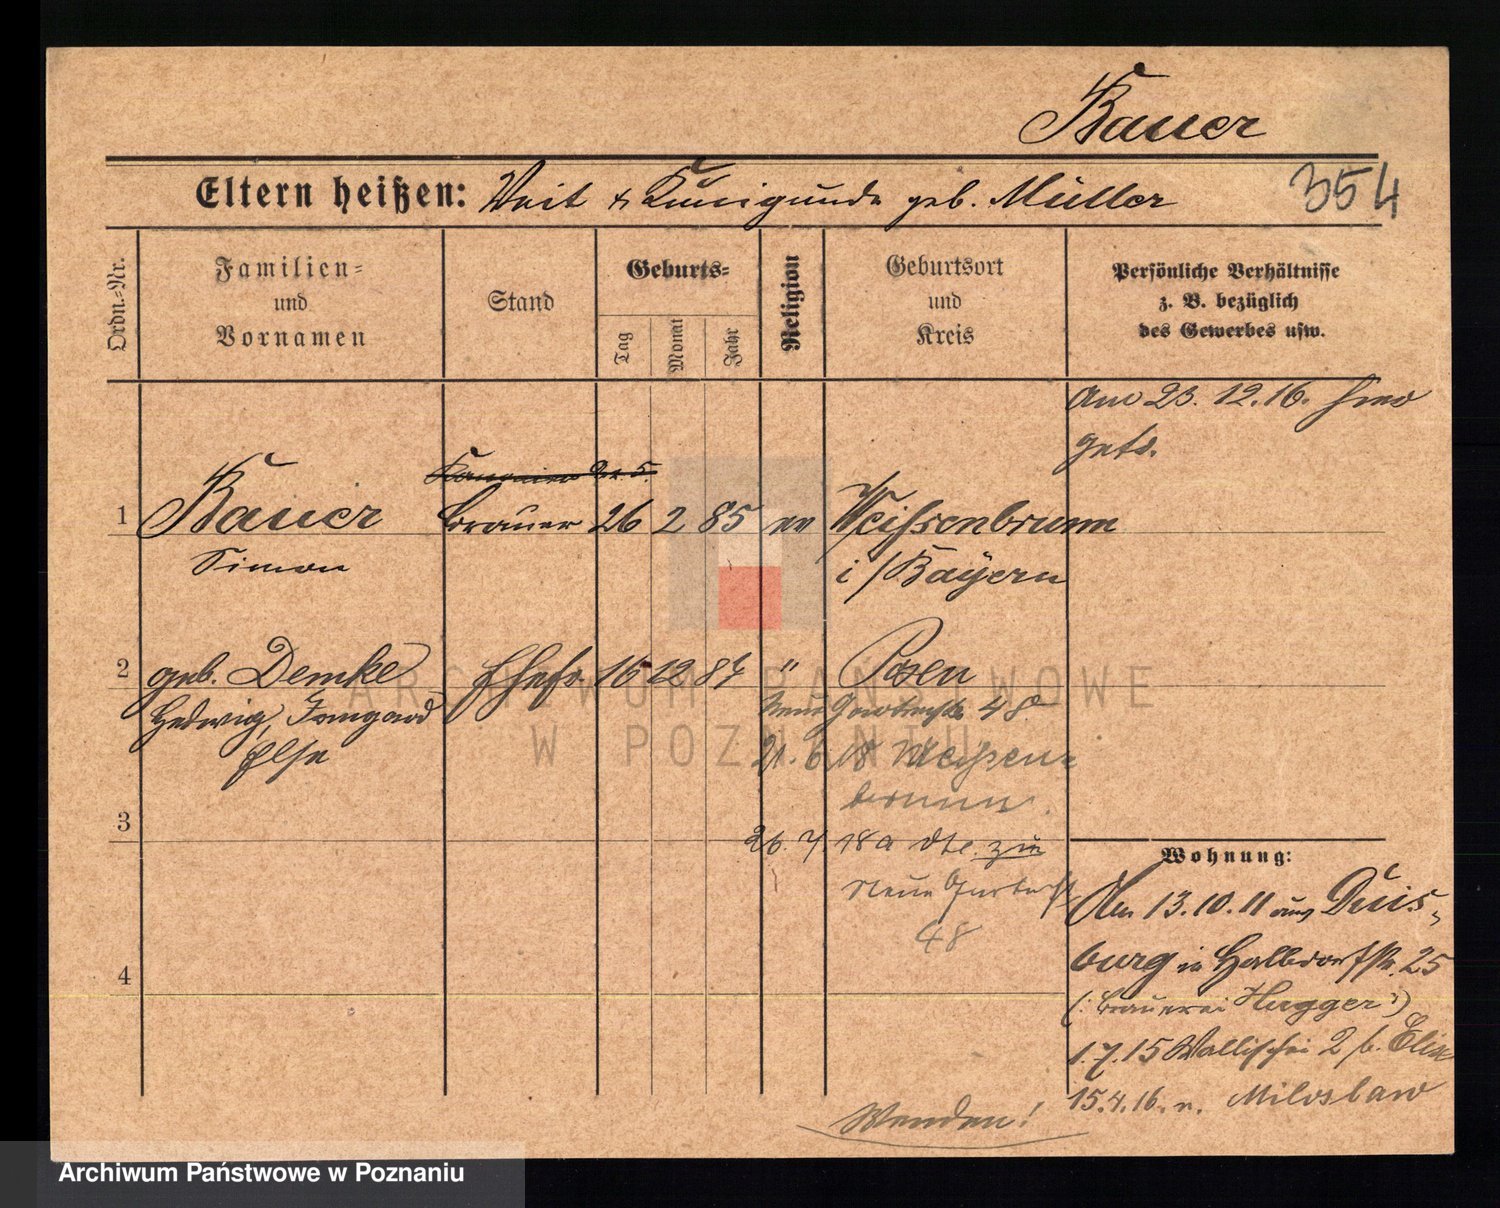 Bauer
Eltern heißen: Veit & Kunigunde geb. Müller
354
Ordn.-Nr.
Familien-
und
Vornamen
Stand
Geburts-
Tag
Monat
Jahr
Religion
Geburtsort
und
Kreis
Persönliche Verhältnisse
z. B. bezüglich
des Gewerbes usw.
Am 23. 12. 16. hier
getr.
1 Bauer Brauer 26 2 85 ev Weissenbrunn
Simon
i/Bayern
2 geb. Demke Ehefr. 16 12 84 " Posen
Hedwig, Irmgard
Else
Neue Gartenstr. 48
21. 6. 18 Weissen-
brunn.
3
26. 7. 18 a dte. zu
Neue Gartenstr
48
4
Wohnung:
Am 13.10.11 aus Duis-
burg in Halbdorfstr. 25
(: Brauerei Hugger :)
1.7.15 Wallischei 2 b.
15.4.16. n. Miloslaw
Wenden!
ARCHIWUM PAŃSTWOWE
W POZNANIU
Archiwum Państwowe w Poznaniu